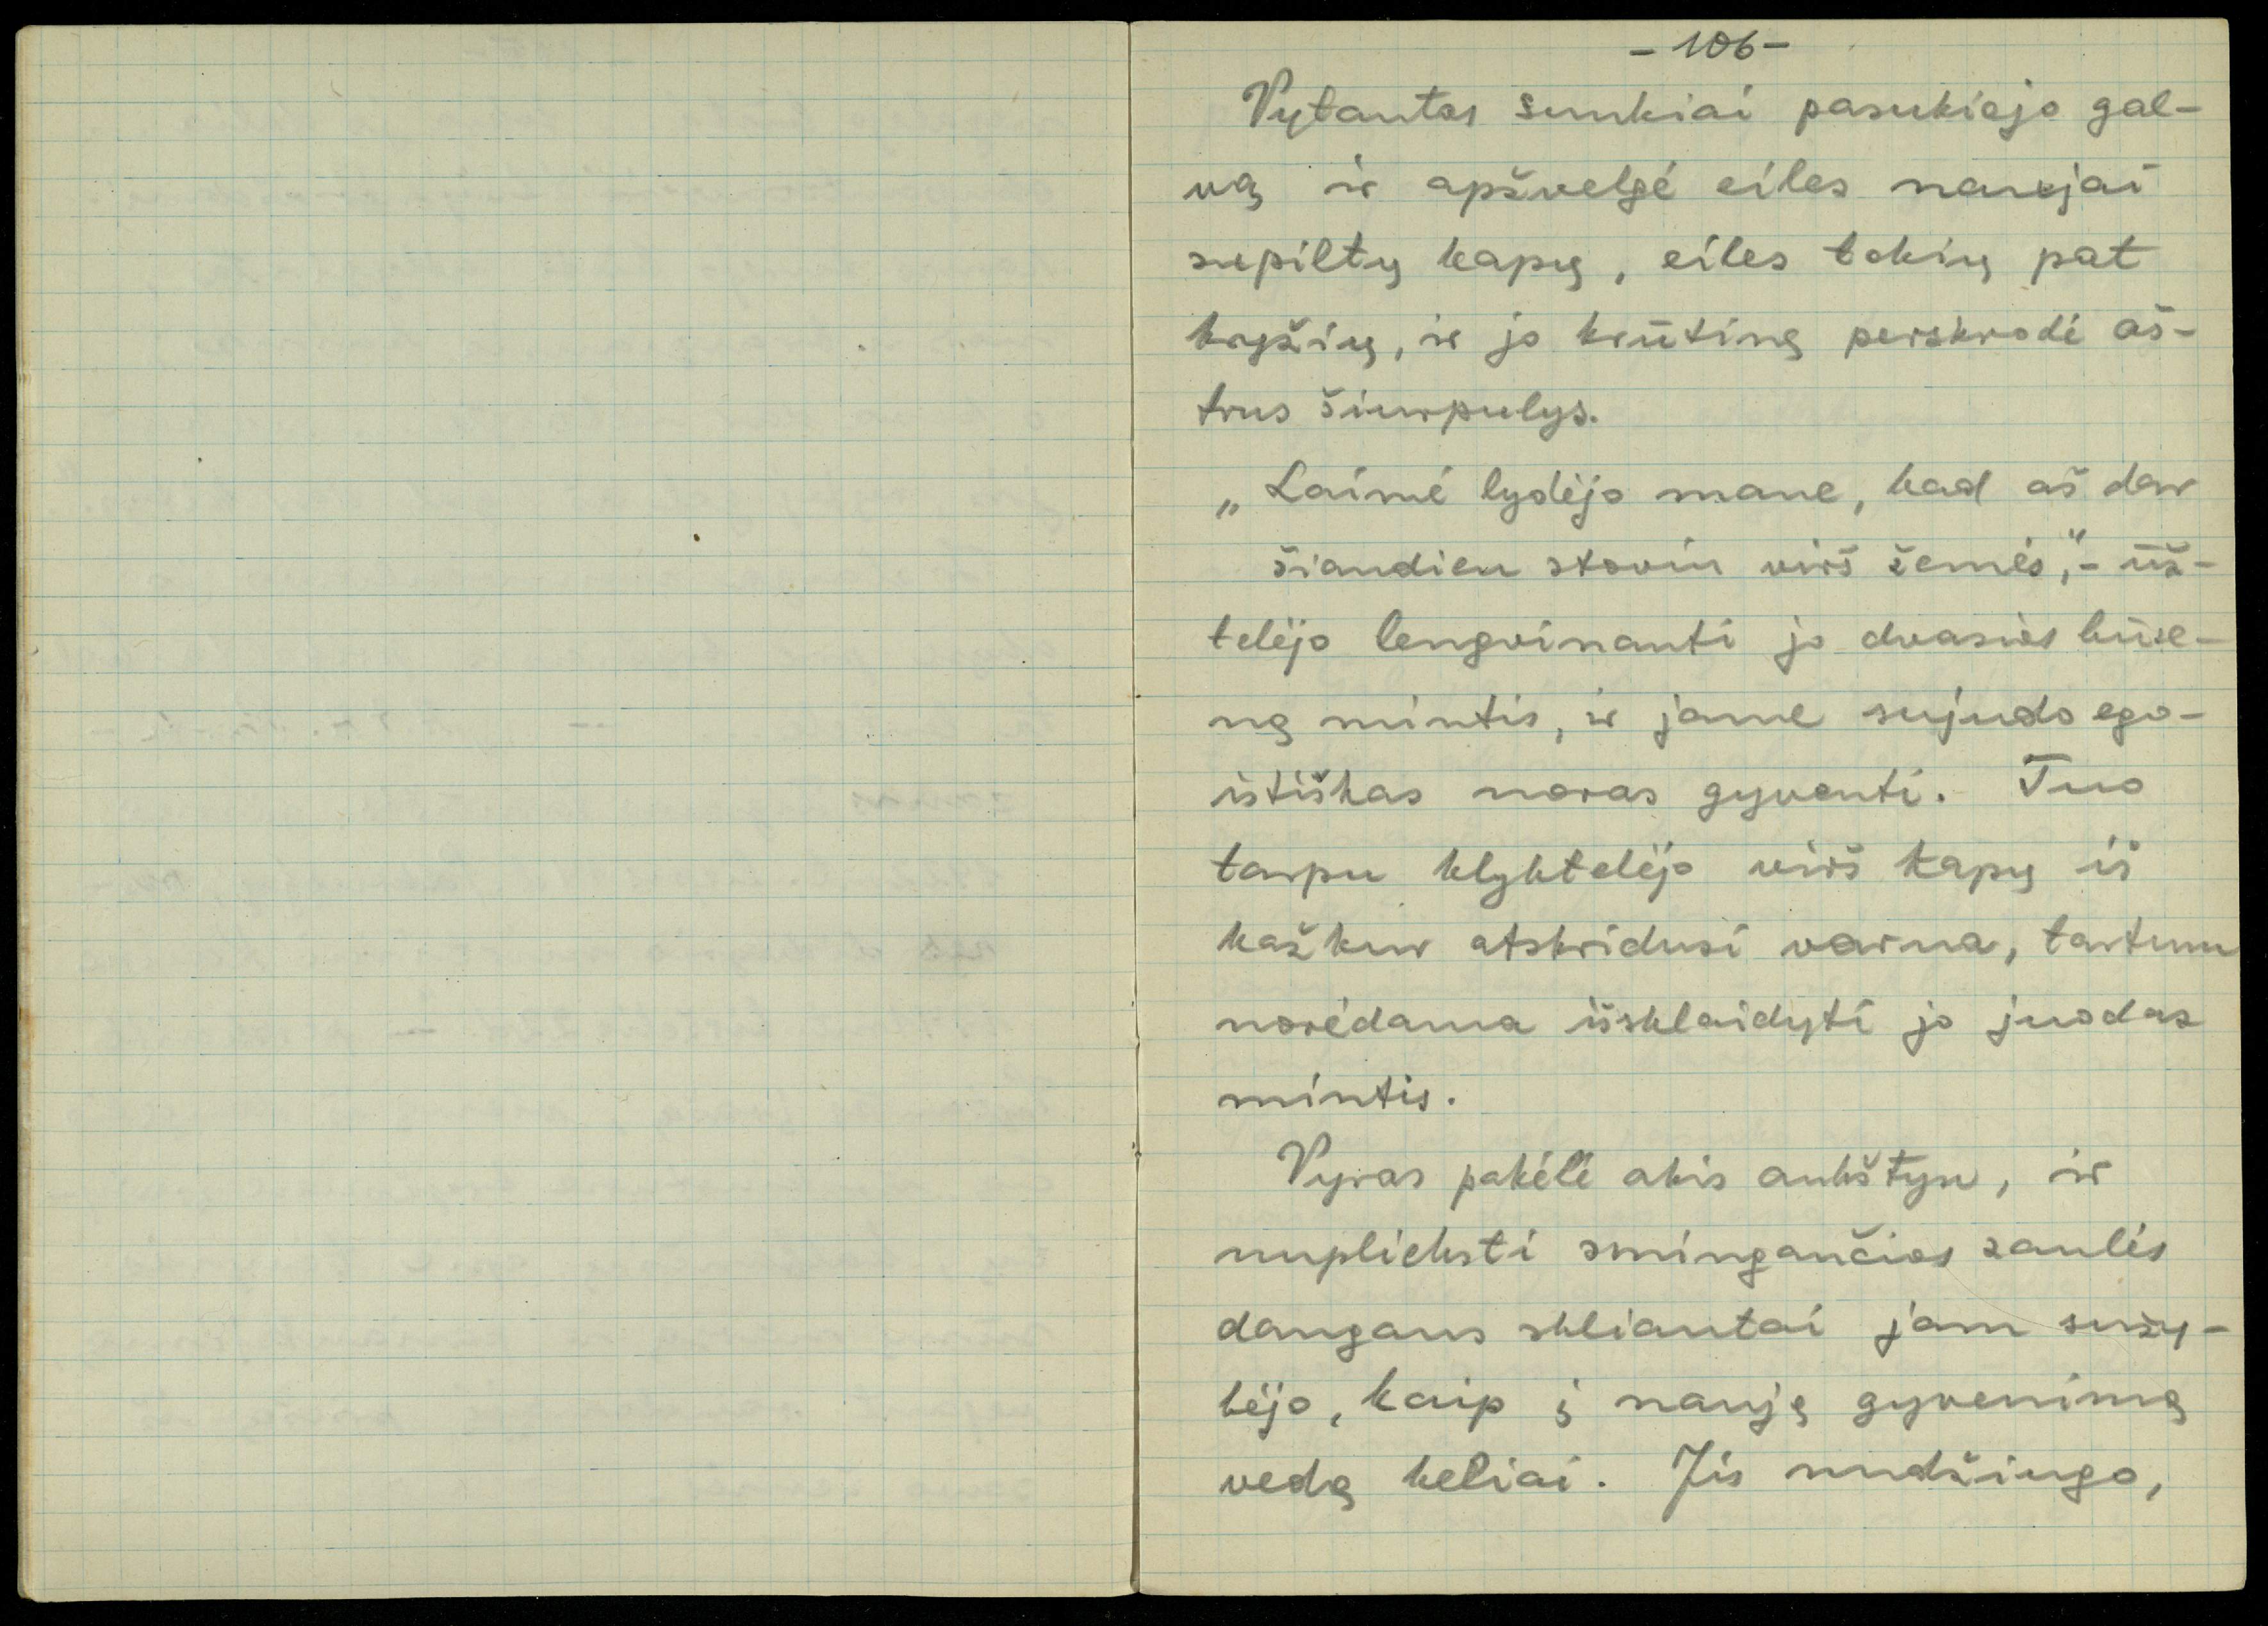 - 106 -
Vytautas sunkiai pasukiojo gal-
vą ir apžvelgė eiles naujai
supiltų kapų, eiles tokių pat
kryžių, ir jo krūtinę perskrodė aš-
trus šiurpulys.
„Laimė lydėjo mane, kad aš dar
šiandien stoviu virš žemės,"- už-
telėjo lengvinanti jo dvasios būse-
ną mintis, ir jame sujudo ego-
istiškas noras gyventi. Tuo
tarpu klyktelėjo virš kapų iš
kažkur atskridusi varna, tartum
norėdama išsklaidyti jo juodas
mintis.
Vyras pakėlė akis aukštyn, ir
nuplieksti smingančios saulės
dangaus skliautai jam sužy-
bėjo, kaip į naują gyvenimą
vedą keliai. Jis nudžiugo,